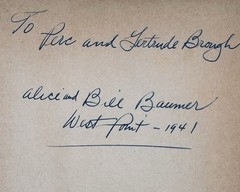 To Perc and Gertrude Brough
Alice and Bill Baumer
West Point - 1941